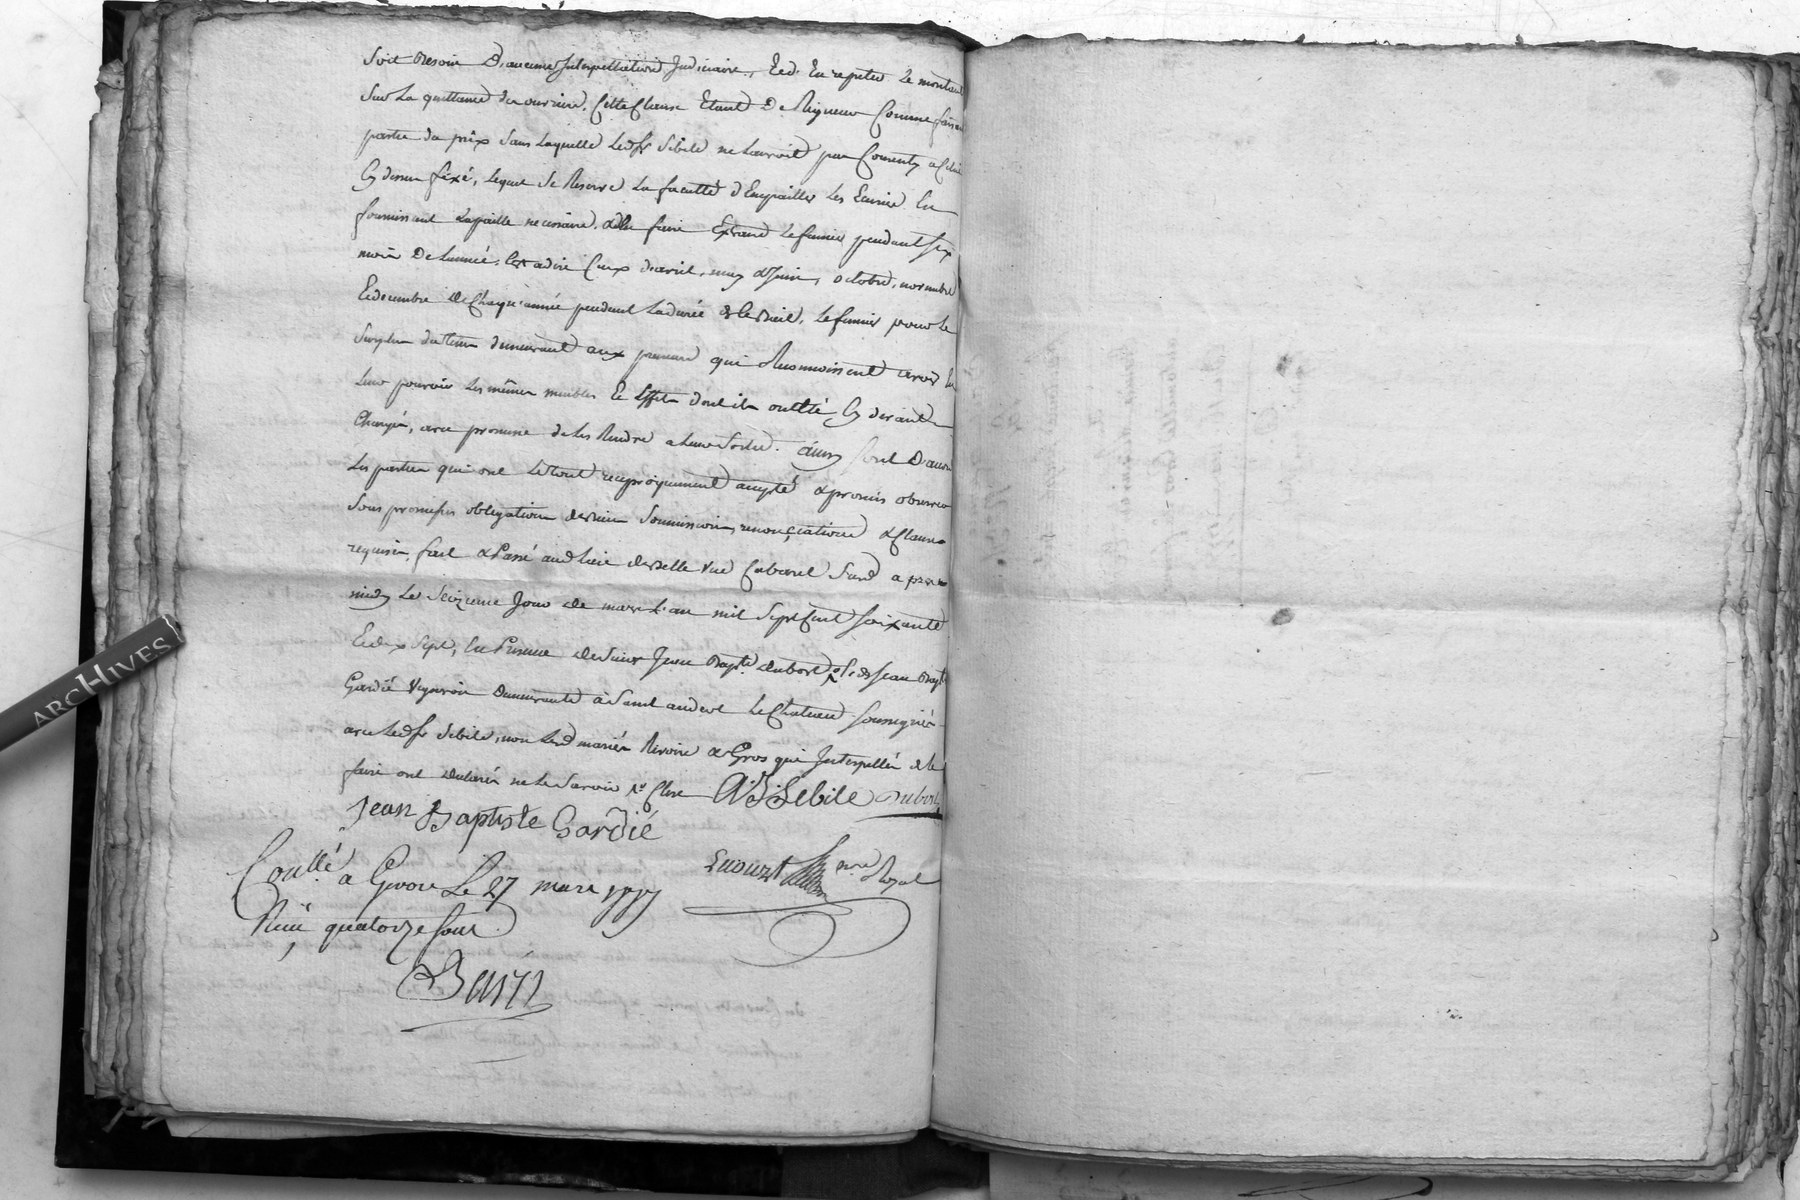 Soit Besoin D'aucune Interpellation Judiciaire, Et d'En repeter Le montant
Sur La quittance des ouvriers, Cette Clause Etant De Rigueur Comme faisant
partie du prix Sans Laquelle Led Sr Sibile ne Lauroit pas Consenty a Celui
Cy dessus fixé, Lequel Se Reserve La faculté d'Empailler Les Ecuries En
fournissant La paille necessaire, & En faire Extraire Le fumier pendant Six
mois De Lannée, C'est a dire Ceux d'avril, may & Juin, octobre, novembre
Et decembre de Chaque année pendant La durée de Ce Bail, Le fumier pour Le
Surplus du tems demeurant aux preneurs qui Reconnoissent avoir En
Leur pouvoir Les mêmes meubles Et Effets dont ils ont Eté Cy devant
Chargés, avec promesse de Les Rendre a Leur Sortie. ainsy Sont D'accord
Les parties qui ont Le tout reciproquement accepté & promis observer
Sous promesses obligation de Biens Soumissions, renonciations & Clauses
requises, fait & Passé aud Lieu de Belle Vue Cabaret Sud a pres
midy Le Seizieme Jour de mars L'an mil Sept Cent Soixante
Et dix Sept, En Presence de Sieur Jean Bapte dubost & de Jean Bapte
Gardié Vigneron Demeurants à Saint andeol Le Chateau Soussignés
avec Led Sr Sibile, non Les d mariés Revoire & Gros qui Interpellés de Le
faire ont declarés ne Le Savoir
Sibile Dubost
Jean Baptiste Gardié
nre Royal
Conllé a Givors Le 27 mars 1777
Reçu quatorze Sous
ARCHIVES